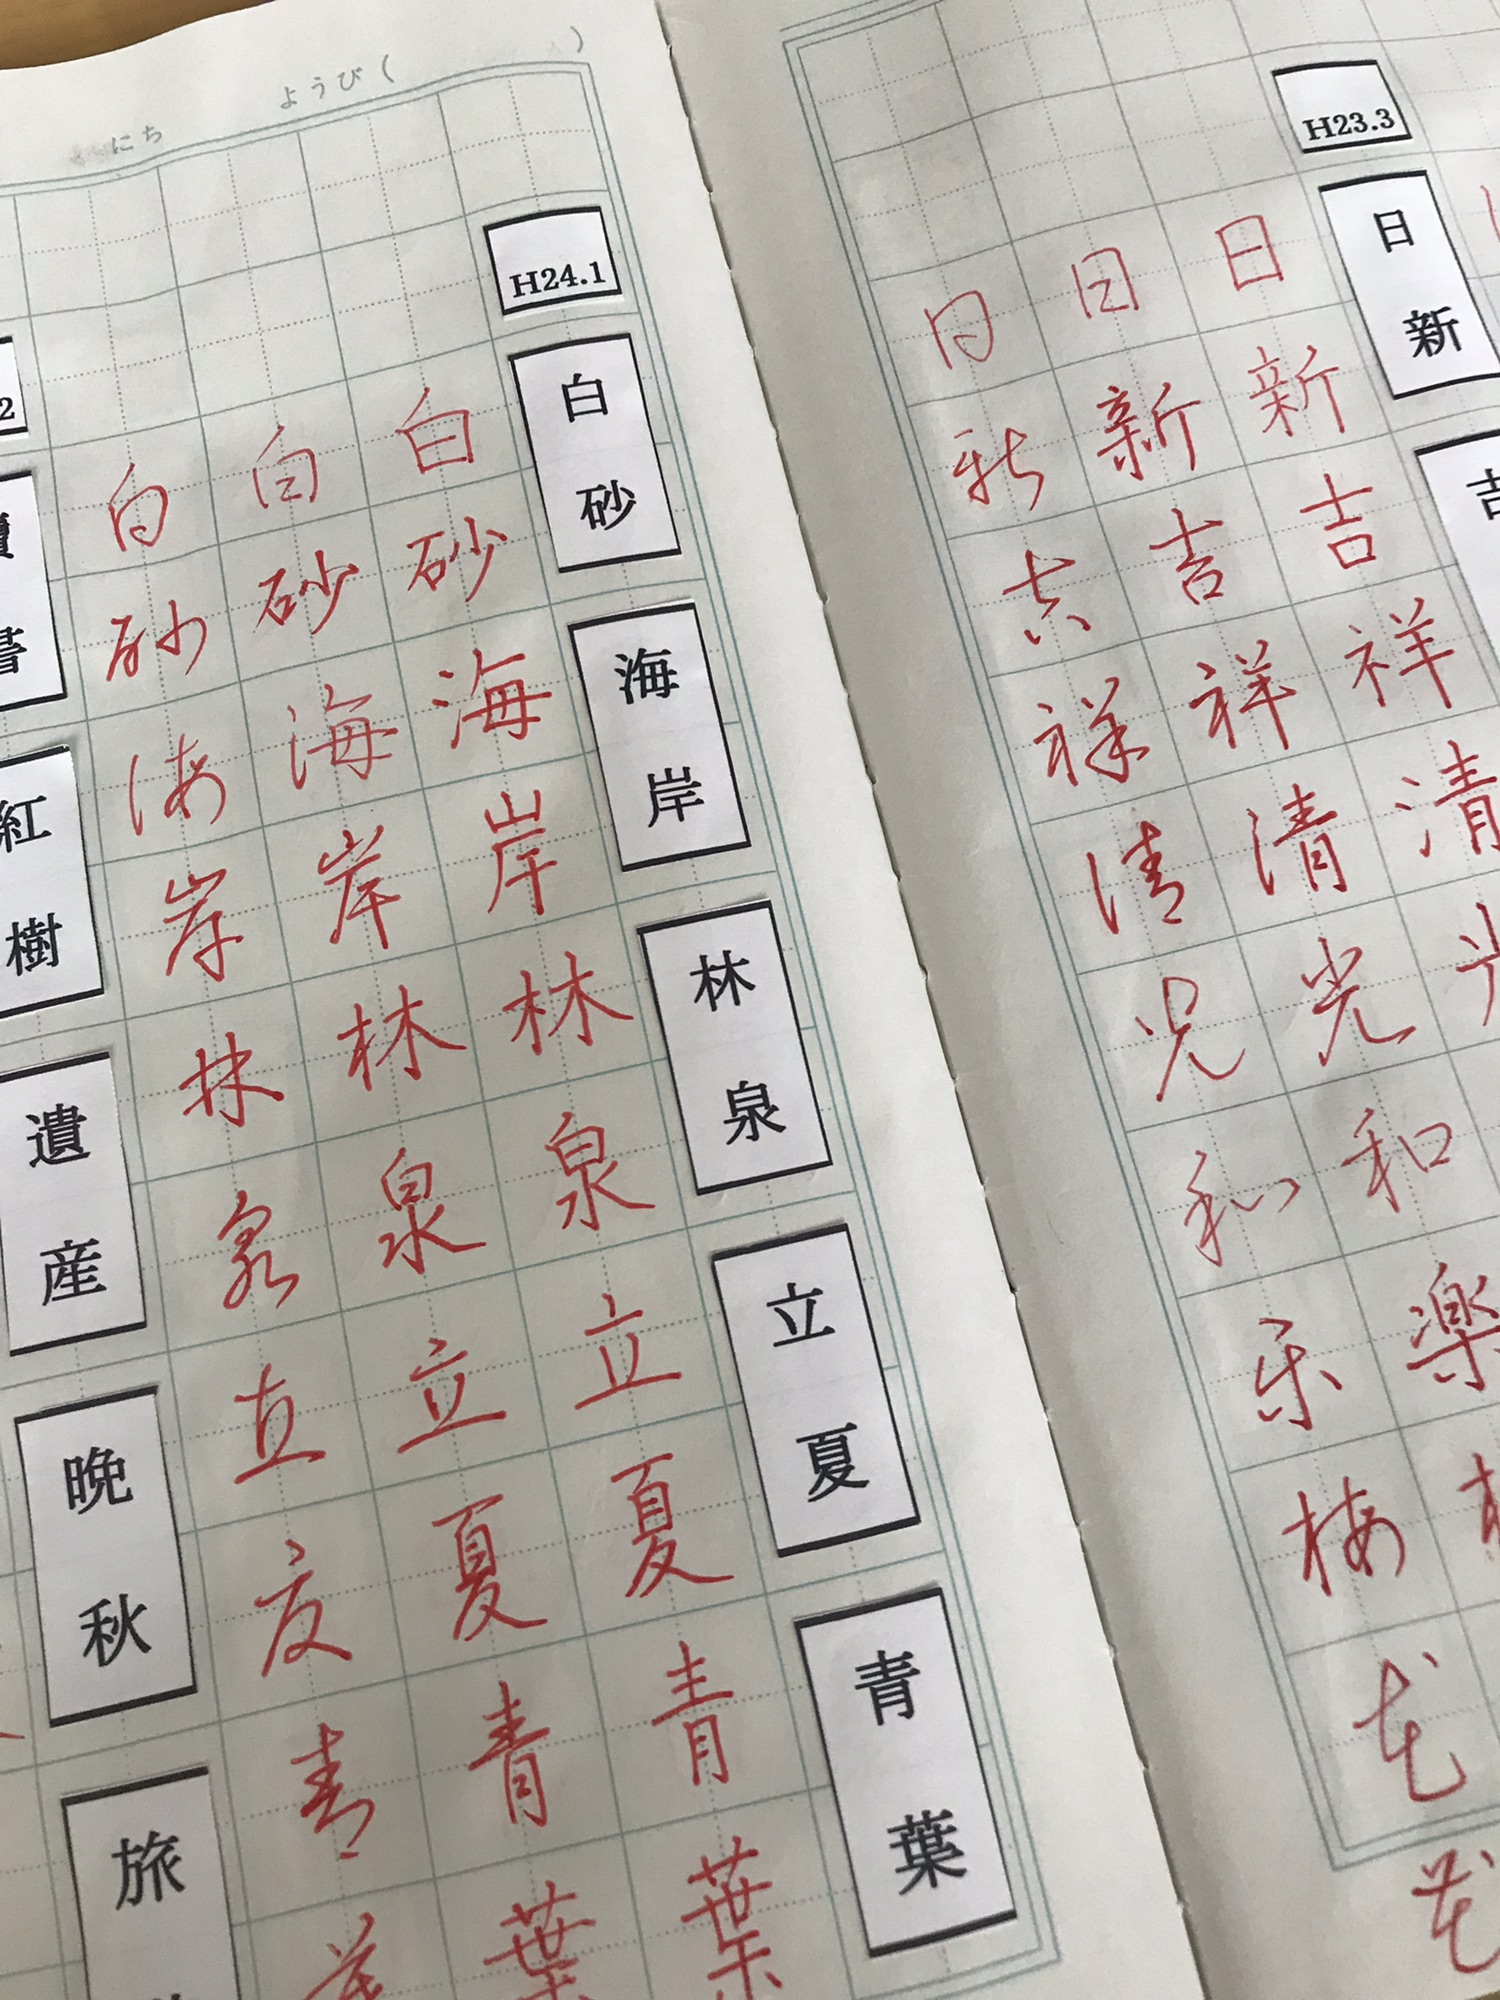 H23.3
日新
吉
日新吉祥清光
日新吉祥清光和楽
日新吉祥清光和楽梅花
花
にち
ようび( )
H24.1
白砂
海岸
林泉
立夏
青葉
白砂海岸林泉立夏青葉
白砂海岸林泉立夏青葉
白砂海岸林泉立夏青
2
書
紅樹
遺産
晩秋
旅